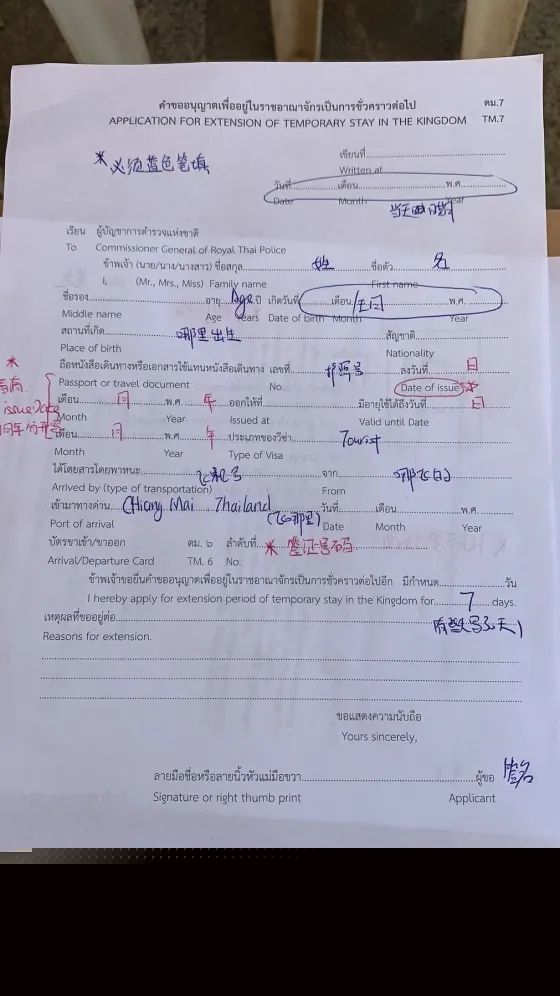 คำขออนุญาตเพื่ออยู่ในราชอาณาจักรเป็นการชั่วคราวต่อไป ตม.7
APPLICATION FOR EXTENSION OF TEMPORARY STAY IN THE KINGDOM TM.7
* 必须蓝色笔填
เขียนที่
Written at
วันที่ เดือน พ.ศ.
Date Month Year
当天
เรียน ผู้บัญชาการตำรวจแห่งชาติ
To Commissioner General of Royal Thai Police
ข้าพเจ้า (นาย/นาง/นางสาว) ชื่อสกุล 姓 ชื่อตัว 名
I, (Mr., Mrs., Miss) Family name First name
ชื่อรอง อายุ Age ปี เกิดวันที่ เดือน 生日 พ.ศ.
Middle name Age Years Date of birth Month Year
สถานที่เกิด 哪里出生 สัญชาติ
Place of birth Nationality
ถือหนังสือเดินทางหรือเอกสารใช้แทนหนังสือเดินทาง เลขที่ 护照号 ลงวันที่ 日
Passport or travel document No. Date of issue *
*
issue Date
เดือน 月 พ.ศ. 年 ออกให้ที่ มีอายุใช้ได้ถึงวันที่ 日
Month Year Issued at Valid until Date
เดือน 月 พ.ศ. 年 ประเภทของวีซ่า Tourist
Month Year Type of Visa
ได้โดยสารโดยพาหนะ จาก
Arrived by (type of transportation) From
เข้ามาทางด่าน Chiang Mai Thailand วันที่ เดือน พ.ศ.
Port of arrival Date Month Year
บัตรขาเข้า/ขาออก ตม. ๖ ลำดับที่ * 签证号码
Arrival/Departure Card TM. 6 No.
ข้าพเจ้าขอยื่นคำขออนุญาตเพื่ออยู่ในราชอาณาจักรเป็นการชั่วคราวต่อไปอีก มีกำหนด วัน
I hereby apply for extension period of temporary stay in the Kingdom for 7 days.
เหตุผลที่ขออยู่ต่อ
Reasons for extension.
ขอแสดงความนับถือ
Yours sincerely,
ลายมือชื่อหรือลายนิ้วหัวแม่มือขวา ผู้ขอ 签名
Signature or right thumb print Applicant